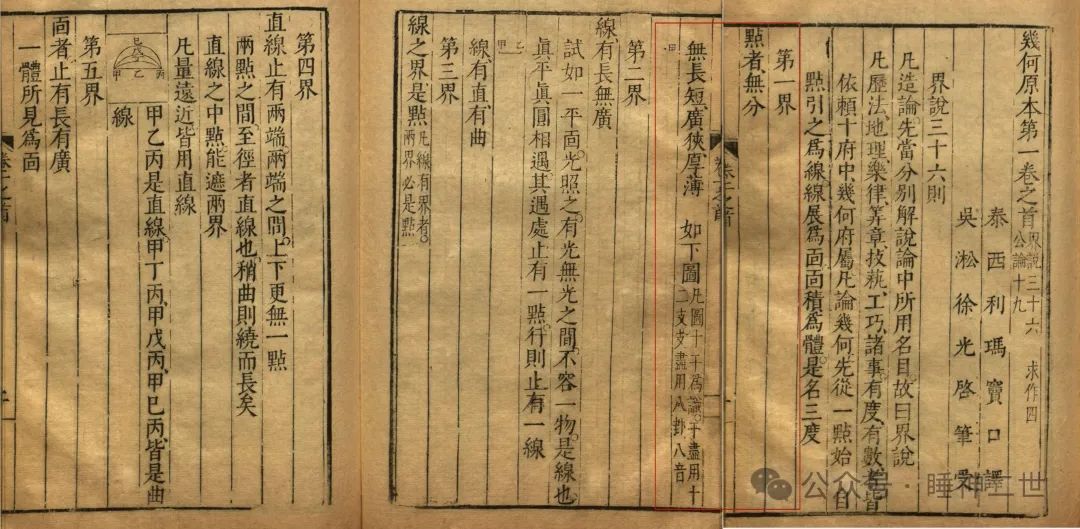 幾何原本第一卷之首 界說三十六 公論十九 求作四
泰西利瑪竇口譯
吳淞徐光啓筆受
界說三十六則
凡造論先當分別解說論中所用名目故曰界說
凡歷法地理樂律筭章技埶工巧諸事有度有數者皆
依賴十府中幾何府屬凡論幾何先從一點始自
點引之爲線線展爲面面積爲體是名三度
第一界
點者無分
卷一之首
無長短廣狹厚薄 如下圖 凡圖十干爲識干盡用十二支支盡用八卦八音
甲
第二界
線有長無廣
試如一平面光照之有光無光之間不容一物是線也
眞平眞圓相遇其遇處止有一點行則止有一線
乙 甲
線有直有曲
第三界
線之界是點 凡線有界者兩界必是點
第四界
直線止有兩端兩端之間上下更無一點
兩點之間至徑者直線也稍曲則繞而長矣
直線之中點能遮兩界
凡量遠近皆用直線
甲乙丙是直線甲丁丙甲戊丙甲己丙皆是曲
線
丙 乙 甲
第五界
面者止有長有廣
一體所見爲面
卷一之首
公众号·睡神二世